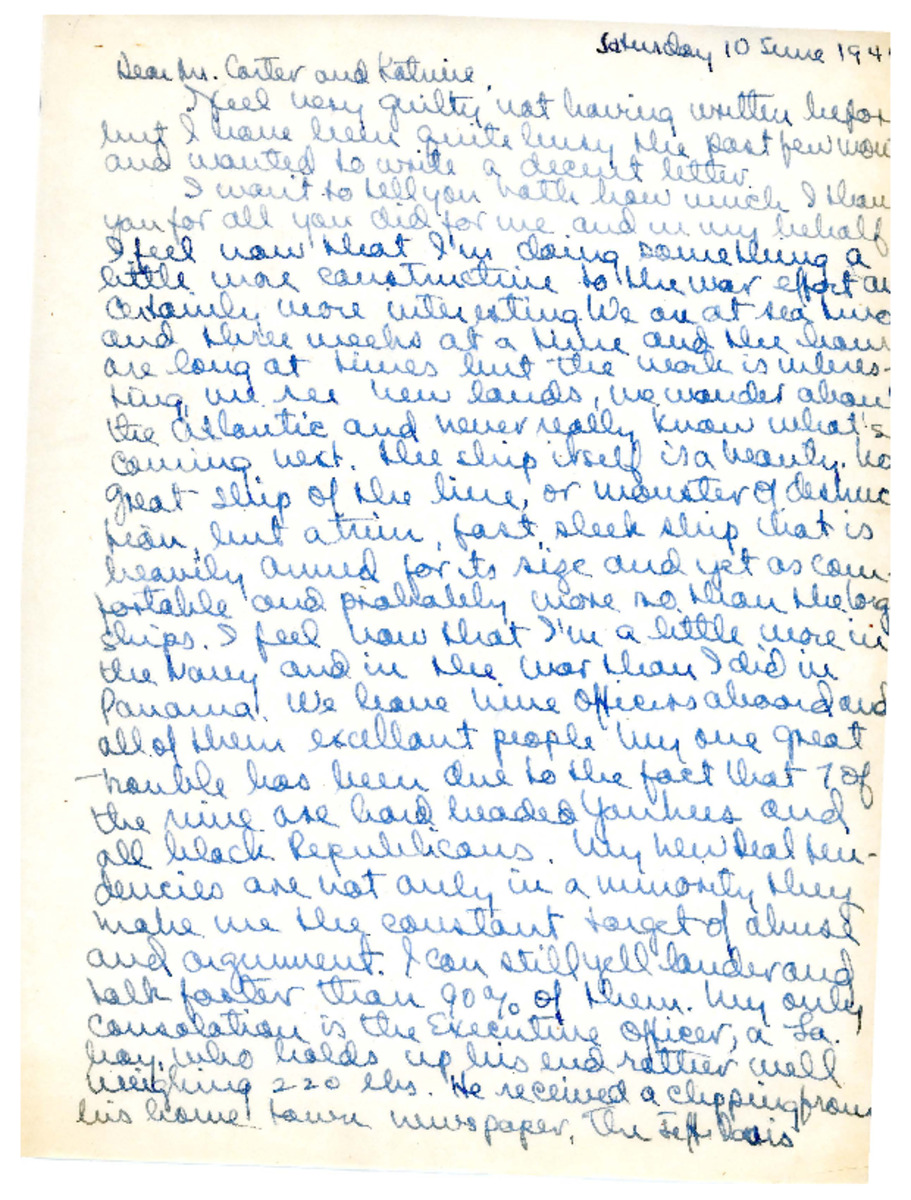 Saturday 10 June 194
Dear Mr. Carter and Katrine
I feel very guilty not having written befor
but I have been quite busy the past few mon
and wanted to write a decent letter.
I want to tell you both how much I than
you for all you did for me and in my behalf
I feel now that I'm doing something a
little more constructive to the war effort an
certainly more interesting. We are at sea two
and three weeks at a time and the hours
are long at times but the work is interes-
ting, we see new lands, we wander about
the Atlantic and never really know what's
coming next. The ship itself is a beauty. no
great ship of the line, or monster of destruc
tion, but a trim, fast, sleek ship that is
heavily armed for its size and yet as com-
fortable and probably more so than the big
ships. I feel now that I'm a little more in
the Navy and in the war than I did in
Panama. We have nine officers aboard and
all of them excellant people My one great
trouble has been due to the fact that 7 of
the nine are hard headed Yankees and
all black Republicans. My new deal ten-
dencies are not only in a minority they
make me the constant target of abuse
and argument. I can still yell louder and
talk faster than 90% of them. My only
consolation is the Executive Officer, a La.
boy, who holds up his end rather well
weighing 220 lbs. He received a clipping from
his home town newspaper, The Jeff Davis